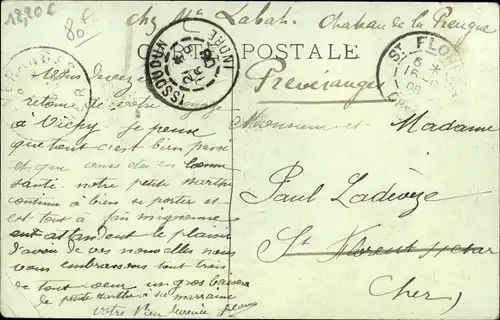 12,20€
80 f
chez Mr Labat. Chateau de la
CARTE POSTALE
ISSOUDUN
INDRE
ST FLORENT
Preveranges
Monsieur et Madame
Paul Ladevèze
St Florent s cher
Cher)
Vous devez
retour de votre voyage
à Vichy je pense
que tout c'est bien passé
et que vous êtes en bonne
santé. notre petite Marthe
continue à bien se porter et
est tout à fait mignonne
en attendant le plaisir
d'avoir de vos nouvelles nous
vous embrassons tout trois
de tout cœur un gros baiser
de petite Marthe à sa marraine
votre